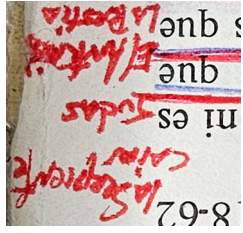 18-62 la Serpiente
Cain
ni es Judas
que El Antcri
s que La Bestia